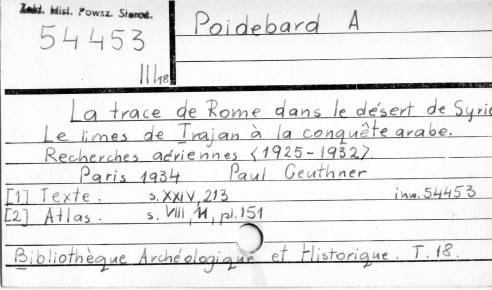 Zakł. Hist. Powsz. Staroż.
54453
III/18
Poidebard A
La trace de Rome dans le désert de Syrie
Le limes de Trajan à la conquête arabe.
Recherches aériennes <1925-1932>
Paris 1934 Paul Geuthner
[1] Texte. s. XXIV, 213 inw. 54453
[2] Atlas. s. VIII, 11, pl. 151
Bibliothèque Archéologique et Historique. T. 18.